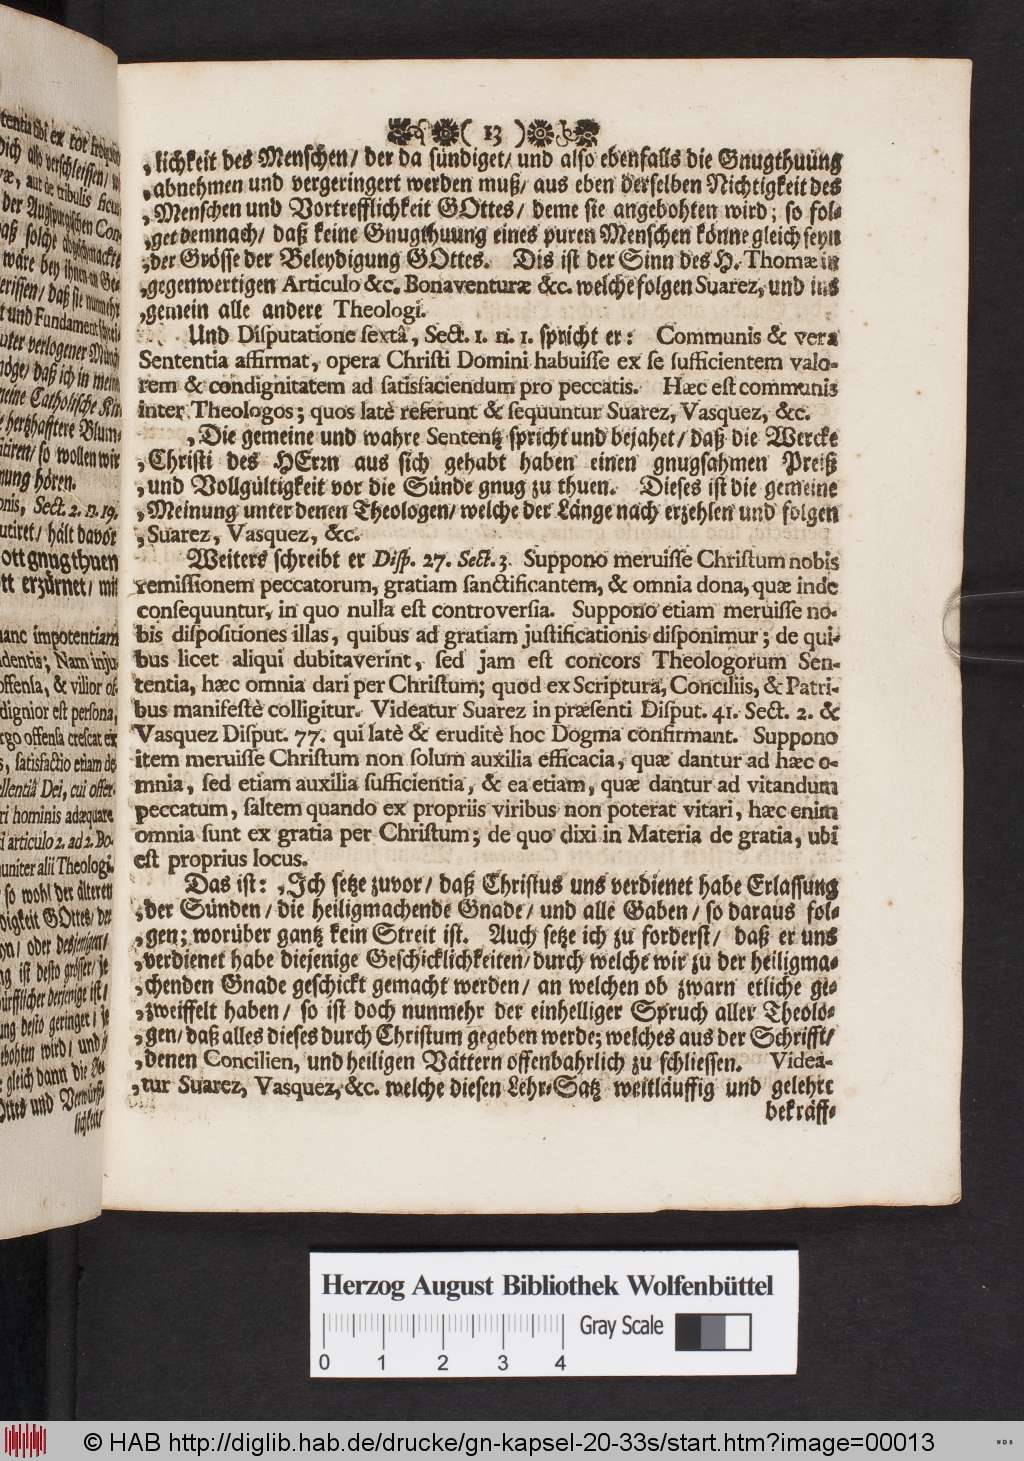 ( 13 )
„lichkeit des Menschen/ der da sündiget/ und also ebenfalls die Gnugthuung
„abnehmen und vergeringert werden muß/ aus eben derselben Nichtigkeit des
„Menschen und Vortrefflichkeit GOttes/ deme sie angebohten wird; so fol-
„get demnach/ daß keine Gnugthuung eines puren Menschen könne gleich seyn
„der Grösse der Beleydigung GOttes. Dis ist der Sinn des H. Thomæ in
„gegenwertigen Articulo &c. Bonaventuræ &c. welche folgen Suarez, und ins
„gemein alle andere Theologi.
Und Disputatione sextâ, Sect. 1. n. 1. spricht er: Communis & vera
Sententia affirmat, opera Christi Domini habuisse ex se sufficientem valo-
rem & condignitatem ad satisfaciendum pro peccatis. Hæc est communis
inter Theologos; quos latè referunt & sequuntur Suarez, Vasquez, &c.
„Die gemeine und wahre Sententz spricht und bejahet/ daß die Wercke
„Christi des HErrn aus sich gehabt haben einen gnugsahmen Preiß
„und Vollgültigkeit vor die Sünde gnug zu thuen. Dieses ist die gemeine
„Meinung unter denen Theologen/ welche der Länge nach erzehlen und folgen
„Suarez, Vasquez, &c.
Weiters schreibt er Disp. 27. Sect. 3. Suppono meruisse Christum nobis
remissionem peccatorum, gratiam sanctificantem, & omnia dona, quæ inde
consequuntur, in quo nulla est controversia. Suppono etiam meruisse no-
bis dispositiones illas, quibus ad gratiam justificationis disponimur; de qui-
bus licet aliqui dubitaverint, sed jam est concors Theologorum Sen-
tentia, hæc omnia dari per Christum; quod ex Scriptura, Conciliis, & Patri-
bus manifestè colligitur. Videatur Suarez in præsenti Disput. 41. Sect. 2. &
Vasquez Disput. 77. qui latè & eruditè hoc Dogma confirmant. Suppono
item meruisse Christum non solum auxilia efficacia, quæ dantur ad hæc o-
mnia, sed etiam auxilia sufficientia, & ea etiam, quæ dantur ad vitandum
peccatum, saltem quando ex propriis viribus non poterat vitari, hæc enim
omnia sunt ex gratia per Christum; de quo dixi in Materia de gratia, ubi
est proprius locus.
Das ist: „Ich setze zuvor/ daß Christus uns verdienet habe Erlassung
„der Sünden/ die heiligmachende Gnade/ und alle Gaben/ so daraus fol-
„gen; worüber gantz kein Streit ist. Auch setze ich zu forderst/ daß er uns
„verdienet habe diejenige Geschicklichkeiten/ durch welche wir zu der heiligma-
„chenden Gnade geschickt gemacht werden/ an welchen ob zwarn etliche ge-
„zweiffelt haben/ so ist doch nunmehr der einhelliger Spruch aller Theolo-
„gen/ daß alles dieses durch Christum gegeben werde; welches aus der Schrifft/
„denen Concilien, und heiligen Vättern offenbahrlich zu schliessen. Videa-
„tur Suarez, Vasquez, &c. welche diesen Lehr-Satz weitläuffig und gelehrt
bekräff-
Herzog August Bibliothek Wolfenbüttel
Gray Scale
0 1 2 3 4
© HAB http://diglib.hab.de/drucke/gn-kapsel-20-33s/start.htm?image=00013